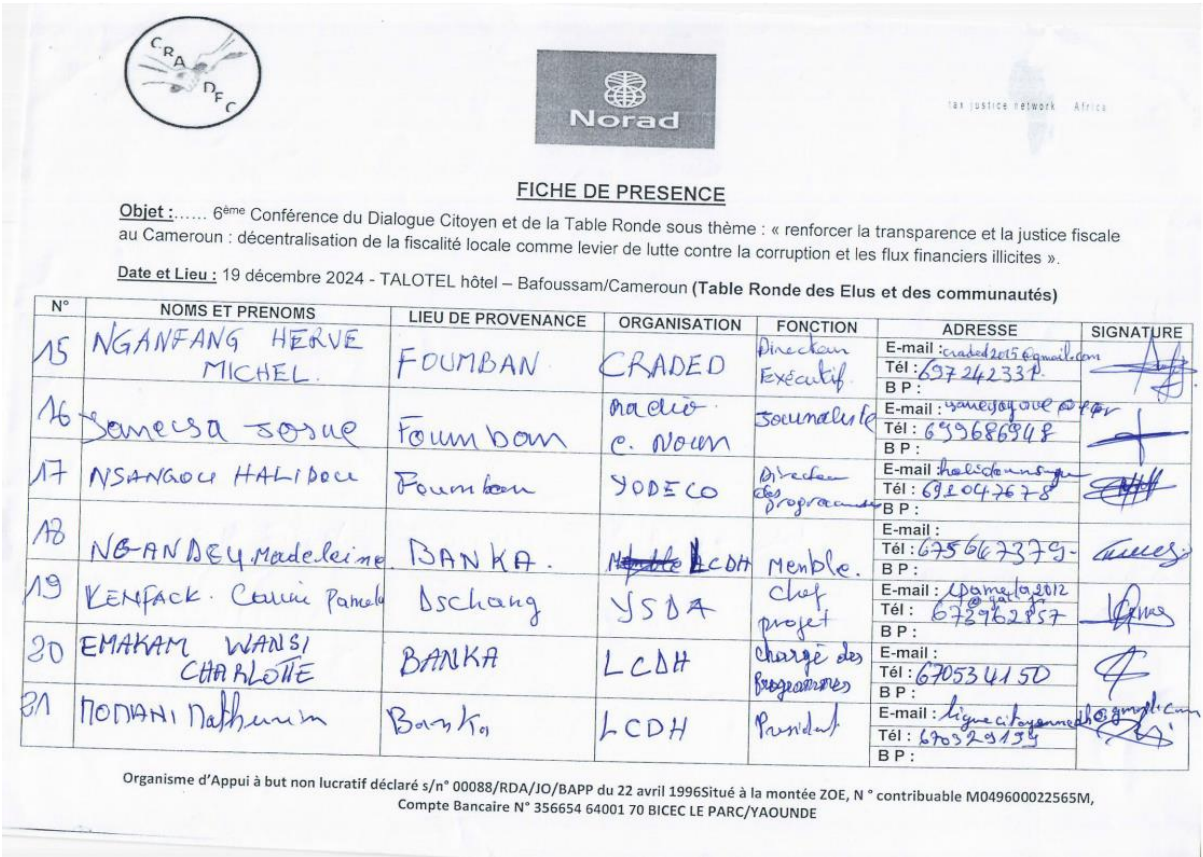 CRADEC
Norad
tax justice network Africa
FICHE DE PRESENCE
Objet :...... 6ème Conférence du Dialogue Citoyen et de la Table Ronde sous thème : « renforcer la transparence et la justice fiscale
au Cameroun : décentralisation de la fiscalité locale comme levier de lutte contre la corruption et les flux financiers illicites ».
Date et Lieu : 19 décembre 2024 - TALOTEL hôtel – Bafoussam/Cameroun (Table Ronde des Elus et des communautés)
N° NOMS ET PRENOMS LIEU DE PROVENANCE ORGANISATION FONCTION ADRESSE SIGNATURE
15 NGANFANG HERVE MICHEL. FOUMBAN CRADED Directeur Exécutif. E-mail : craded2015@gmail.com
Tél : 697242331.
B P :
16 Josue Foumban radio. C. Noun Journaliste E-mail :
Tél : 699686948
B P :
17 NSANGOU HALIDOU Foumban YODECO Directeur des programmes E-mail :
Tél : 691047678
B P :
18 NGANDEU Madeleine. BANKA. LCDH Menble. E-mail :
Tél : 675647379-
B P :
19 KENFACK. Carine Pamela Dschang YSDA chef projet E-mail :
Tél : 673962857
B P :
20 EMAKAM WANSI CHARLOTTE BANKA LCDH chargé des programmes E-mail :
Tél : 670534150
B P :
21 MOMANI Mathurin Banka LCDH President E-mail : liguecitoyennedh@gmail.com
Tél : 670329199
B P :
Organisme d'Appui à but non lucratif déclaré s/n° 00088/RDA/JO/BAPP du 22 avril 1996Situé à la montée ZOE, N ° contribuable M049600022565M,
Compte Bancaire N° 356654 64001 70 BICEC LE PARC/YAOUNDE